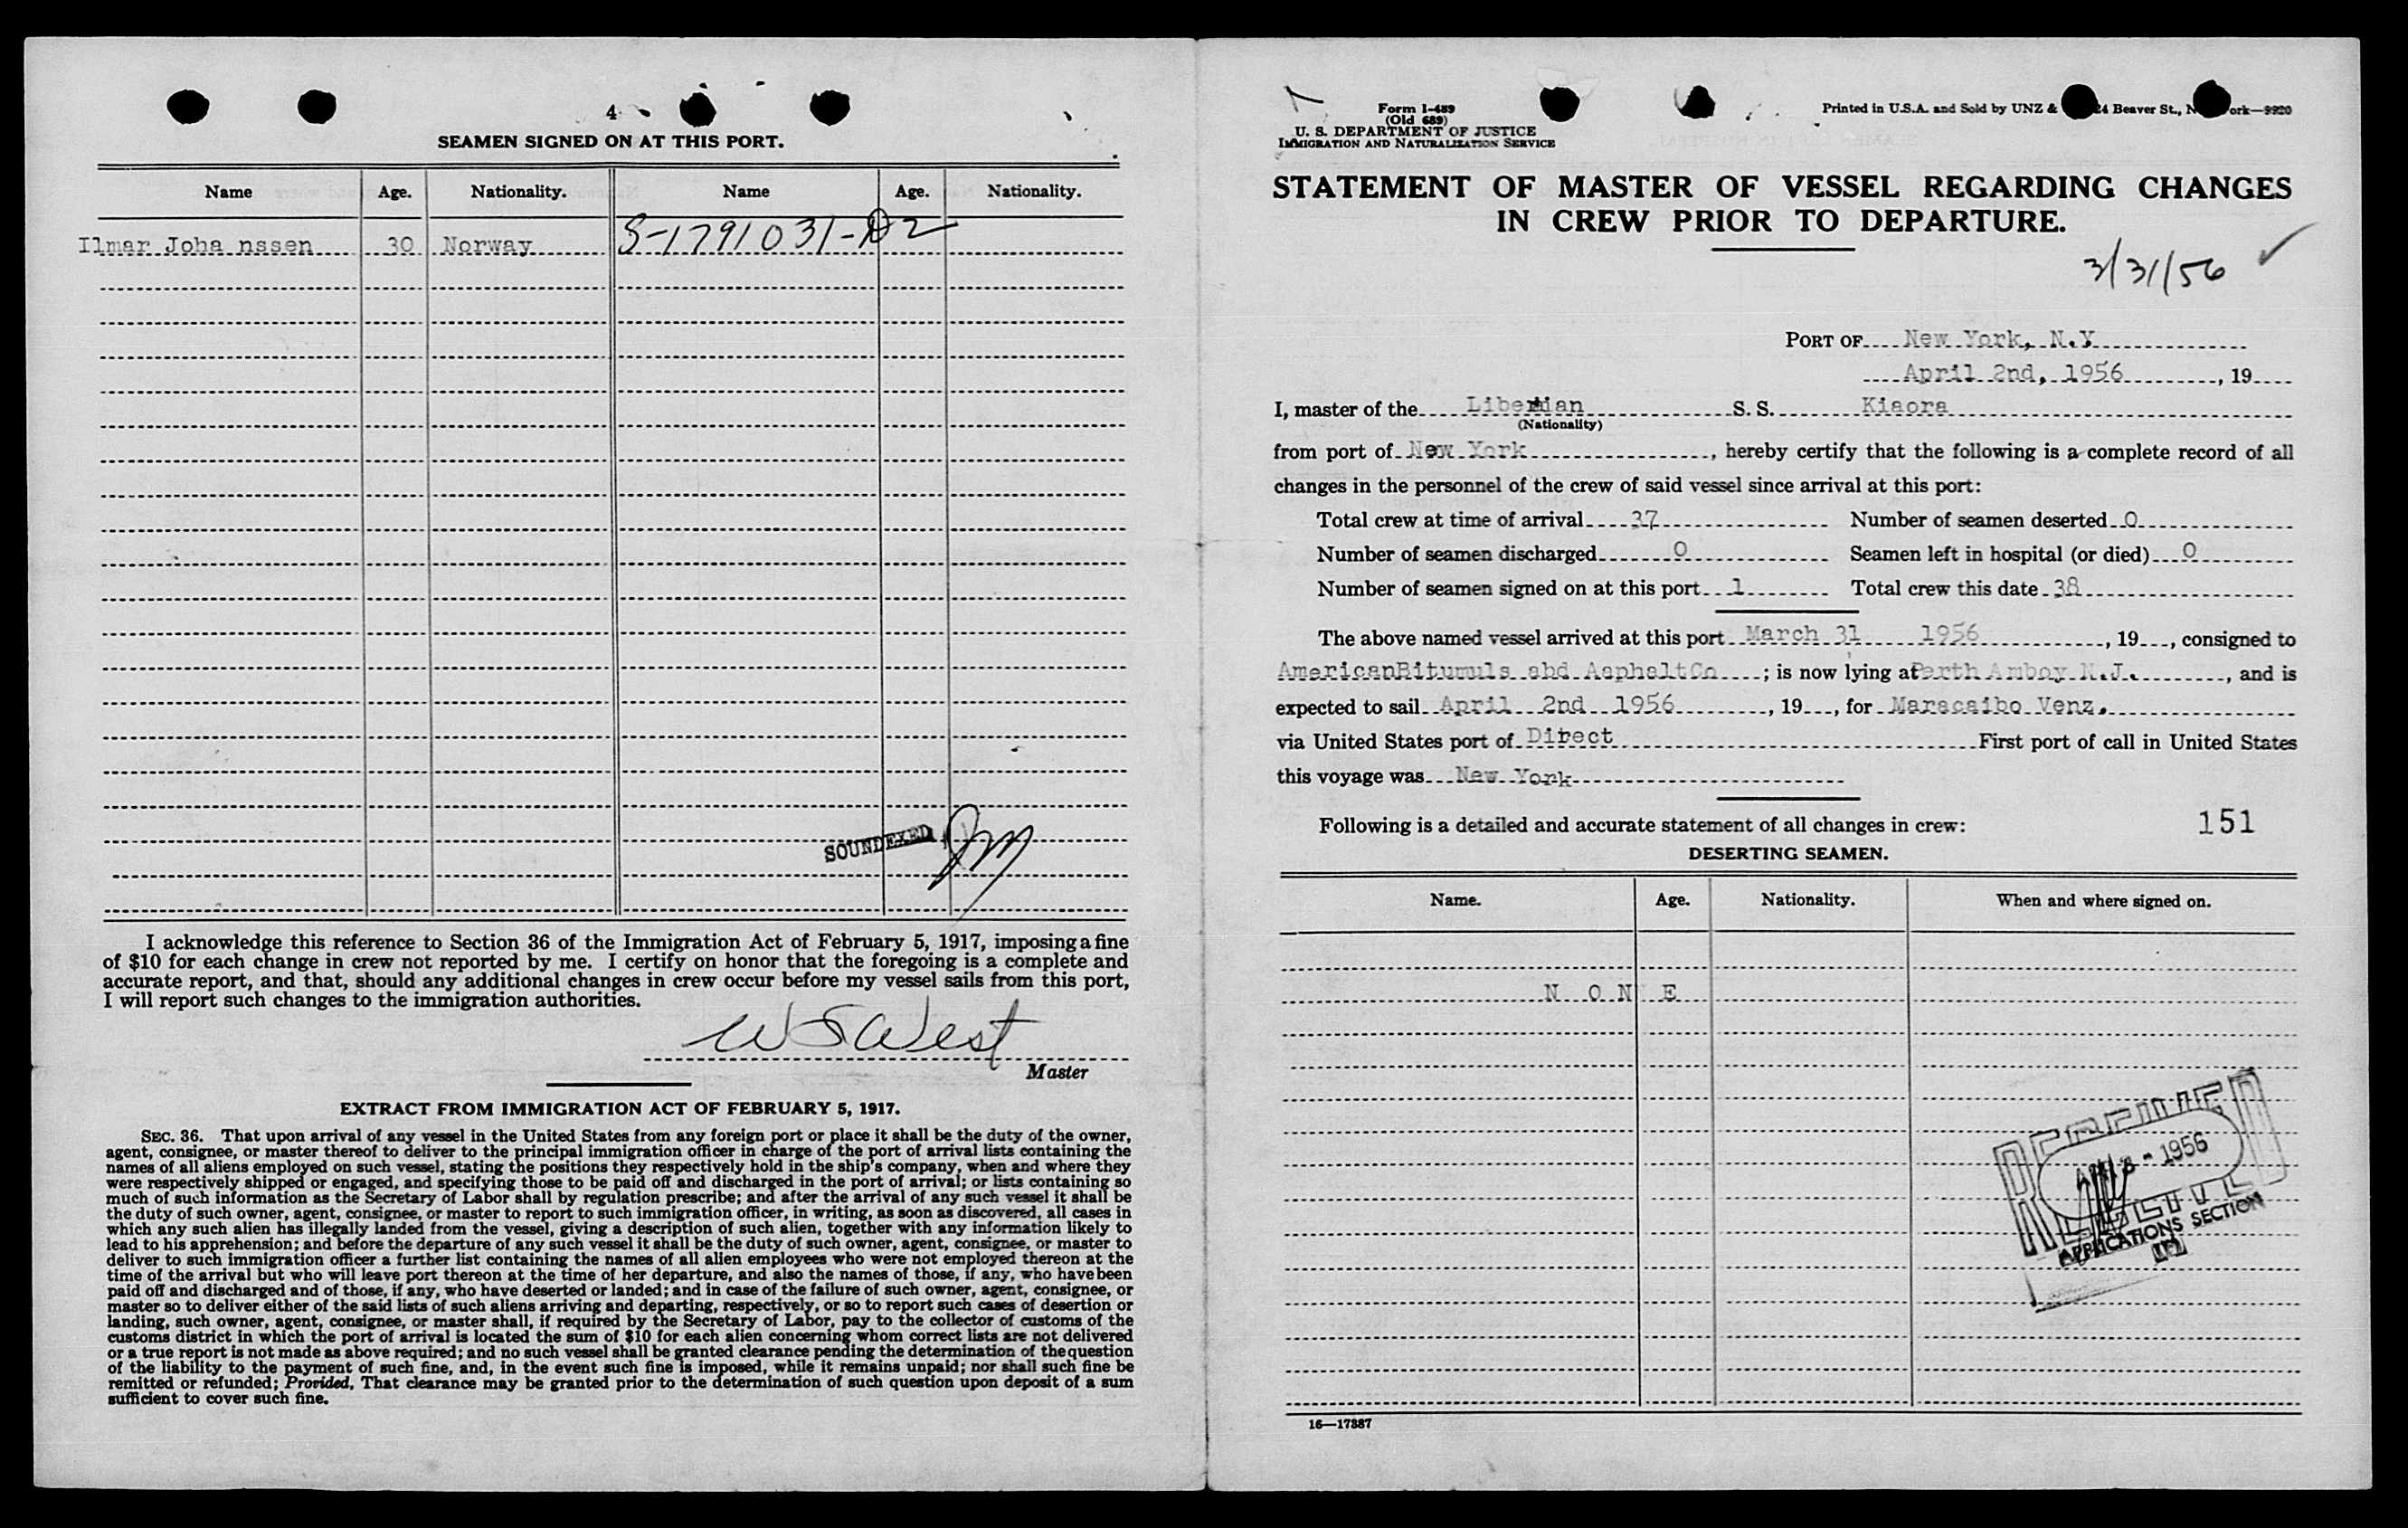 4
SEAMEN SIGNED ON AT THIS PORT.
Name Age. Nationality. Name Age. Nationality.
Ilmar Joha nssen 30 Norway S-1791031-D2
SOUNDEXED
I acknowledge this reference to Section 36 of the Immigration Act of February 5, 1917, imposing a fine
of $10 for each change in crew not reported by me. I certify on honor that the foregoing is a complete and
accurate report, and that, should any additional changes in crew occur before my vessel sails from this port,
I will report such changes to the immigration authorities.
W S West
Master
EXTRACT FROM IMMIGRATION ACT OF FEBRUARY 5, 1917.
SEC. 36. That upon arrival of any vessel in the United States from any foreign port or place it shall be the duty of the owner,
agent, consignee, or master thereof to deliver to the principal immigration officer in charge of the port of arrival lists containing the
names of all aliens employed on such vessel, stating the positions they respectively hold in the ship's company, when and where they
were respectively shipped or engaged, and specifying those to be paid off and discharged in the port of arrival; or lists containing so
much of such information as the Secretary of Labor shall by regulation prescribe; and after the arrival of any such vessel it shall be
the duty of such owner, agent, consignee, or master to report to such immigration officer, in writing, as soon as discovered, all cases in
which any such alien has illegally landed from the vessel, giving a description of such alien, together with any information likely to
lead to his apprehension; and before the departure of any such vessel it shall be the duty of such owner, agent, consignee, or master to
deliver to such immigration officer a further list containing the names of all alien employees who were not employed thereon at the
time of the arrival but who will leave port thereon at the time of her departure, and also the names of those, if any, who have been
paid off and discharged and of those, if any, who have deserted or landed; and in case of the failure of such owner, agent, consignee, or
master so to deliver either of the said lists of such aliens arriving and departing, respectively, or so to report such cases of desertion or
landing, such owner, agent, consignee, or master shall, if required by the Secretary of Labor, pay to the collector of customs of the
customs district in which the port of arrival is located the sum of $10 for each alien concerning whom correct lists are not delivered
or a true report is not made as above required; and no such vessel shall be granted clearance pending the determination of the question
of the liability to the payment of such fine, and, in the event such fine is imposed, while it remains unpaid; nor shall such fine be
remitted or refunded; Provided, That clearance may be granted prior to the determination of such question upon deposit of a sum
sufficient to cover such fine.
Form I-489
(Old 689)
U. S. DEPARTMENT OF JUSTICE
IMMIGRATION AND NATURALIZATION SERVICE
Printed in U.S.A. and Sold by UNZ & 24 Beaver St., N ork—9920
STATEMENT OF MASTER OF VESSEL REGARDING CHANGES
IN CREW PRIOR TO DEPARTURE.
3/31/56 ✓
PORT OF New York, N.Y
April 2nd, 1956, 19
I, master of the Liberian S. S. Kiaora
(Nationality)
from port of New York, hereby certify that the following is a complete record of all
changes in the personnel of the crew of said vessel since arrival at this port:
Total crew at time of arrival 37 Number of seamen deserted 0
Number of seamen discharged 0 Seamen left in hospital (or died) 0
Number of seamen signed on at this port 1 Total crew this date 38
The above named vessel arrived at this port March 31 1956, 19, consigned to
AmericanBitumuls abd AsphaltCo; is now lying at Perth Amboy N.J., and is
expected to sail April 2nd 1956, 19, for Maracaibo Venz.
via United States port of Direct First port of call in United States
this voyage was New York
Following is a detailed and accurate statement of all changes in crew: 151
DESERTING SEAMEN.
Name. Age. Nationality. When and where signed on.
N O N E
RECEIVED
1956
APPLICATIONS SECTION
16—17387